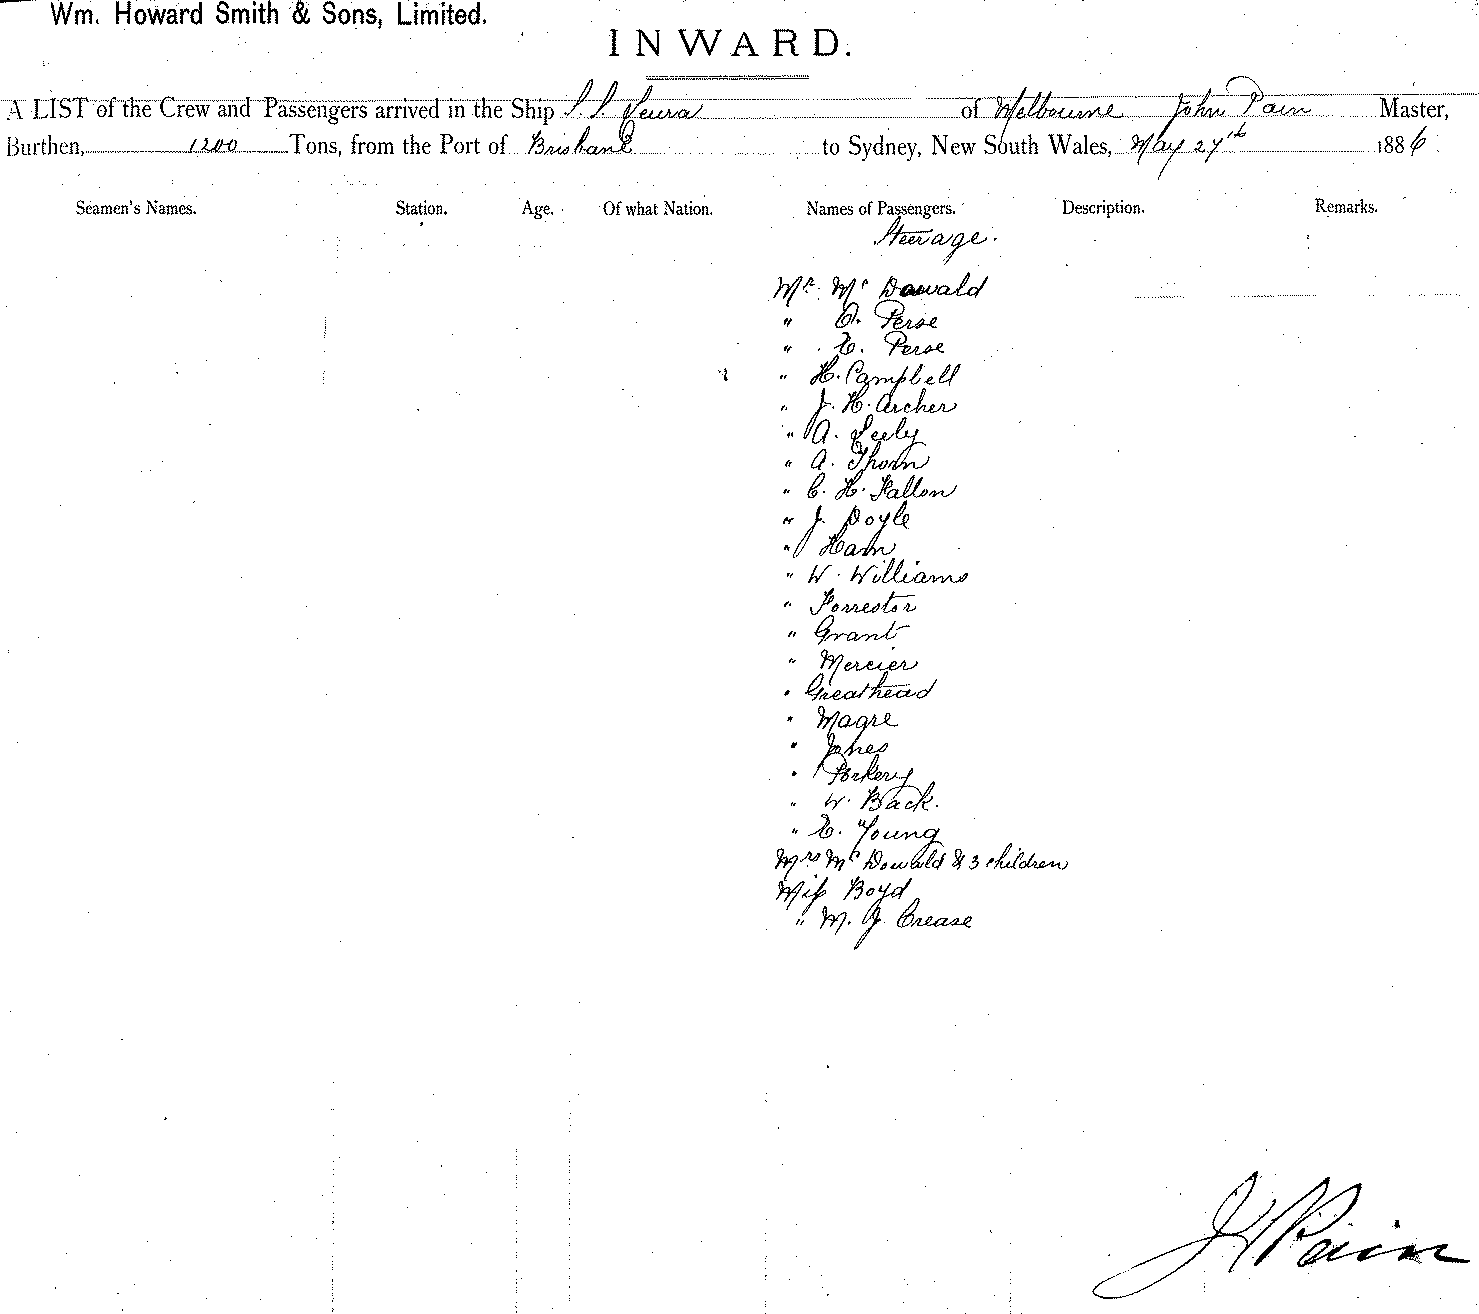 Wm. Howard Smith & Sons, Limited.
INWARD.
A LIST of the Crew and Passengers arrived in the Ship S.S. Leura of Melbourne John Pain Master,
Burthen, 1200 Tons, from the Port of Brisbane to Sydney, New South Wales, May 27th 1886
Seamen's Names. Station. Age. Of what Nation. Names of Passengers. Description. Remarks.
Steerage.
Mr. Mc Dowald
" O. Perse
" E. Perse
" H. Campbell
" J. H. Archer
" A. Seely
" A. Thorn
" C. H. Fallon
" J. Doyle
" Ham
" W. Williams
" Forrestor
" Grant
" Mercier
" Greathead
" Magre
" Jones
" Porkery
" W. Back.
" E. Young
Mrs Mc Dowald & 3 children
Miss Boyd
" M. J. Crease
J Pain